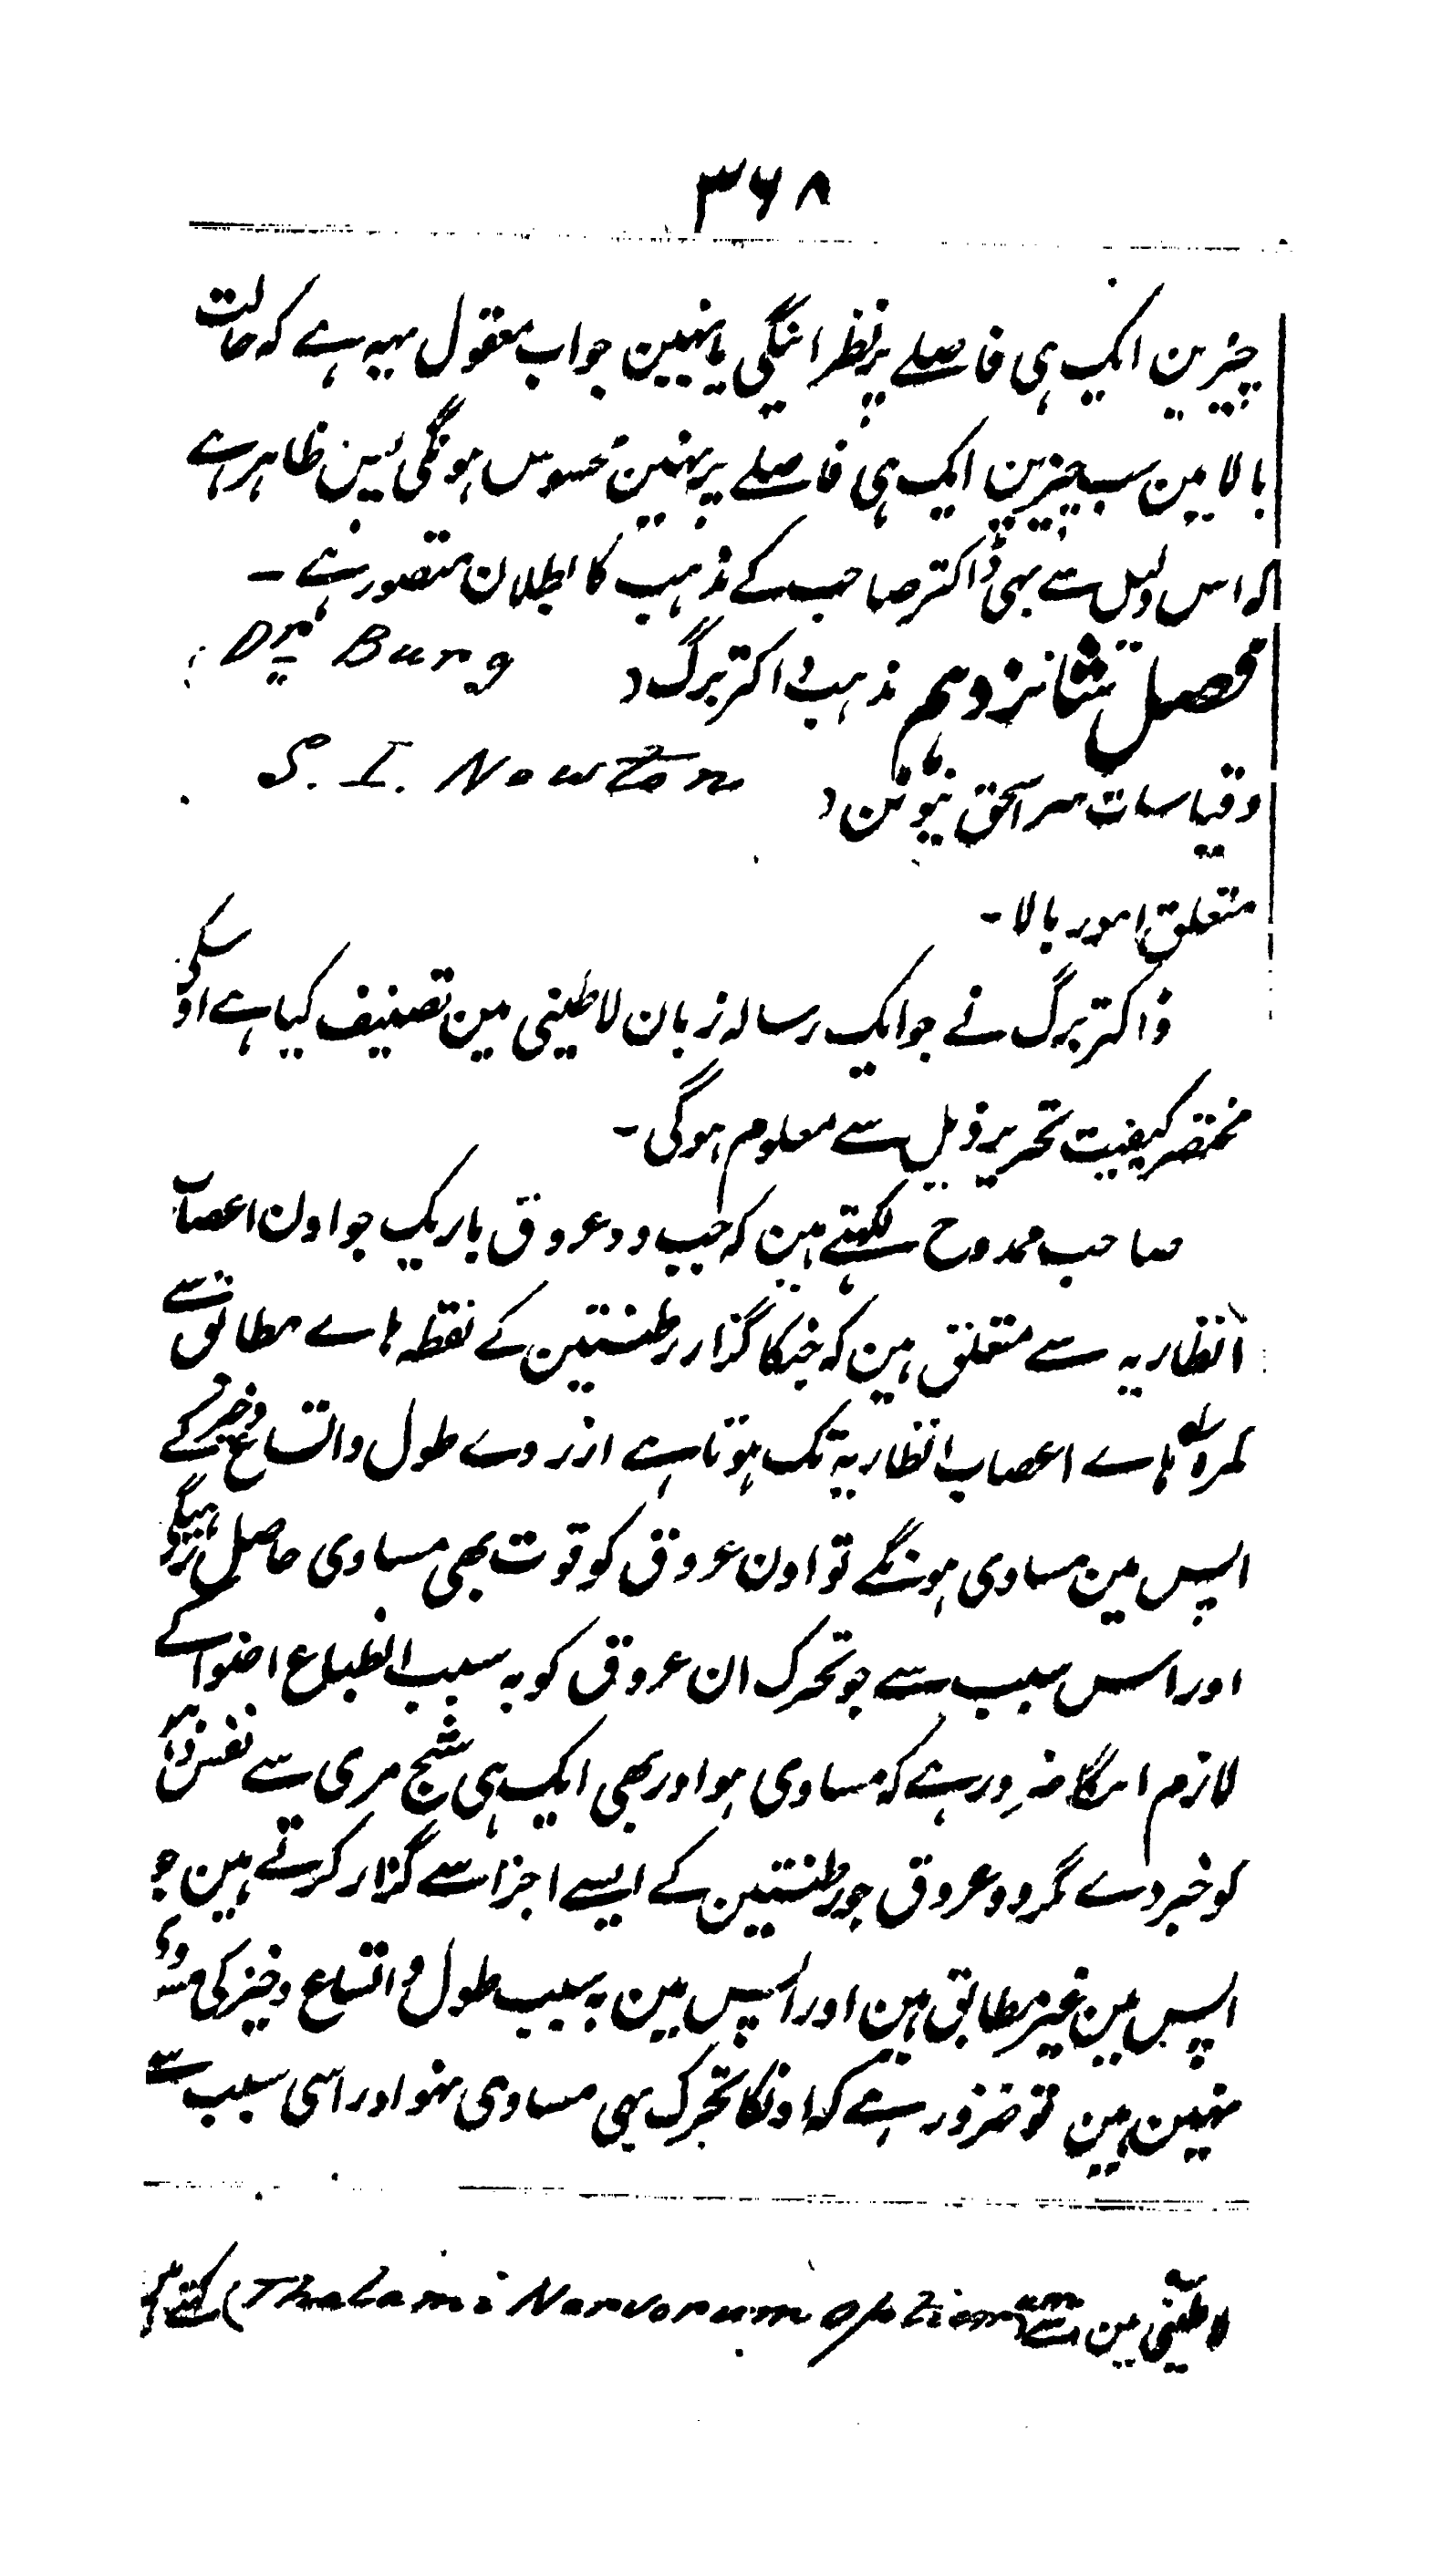 ۳۶۸
چیزین ایک ہی فاصلے پر نظر ائنگی یا نہین جواب معقول یہہ ہے کہ حالت
بالا مین سب چیزین ایک ہی فاصلے پر نہین محسوس ہونگی پس ظاہر ہے
کہ اس دلیل سے بھی ڈاکتر صاحب کے مذہب کا بطلان متصور ہے -
فصل شانزدہم مذہب ڈاکتر برگ ( Dr. Burg
وقیاسات سر اسحق نیوٹن ( S. I. Newton
متعلق امور بالا -
ڈاکتر برگ نے جو ایک رسالہ زبان لاطینی مین تصنیف کیا ہے اوسکی
مختصر کیفیت تحریر ذیل سے معلوم ہوگی -
صاحب ممدوح لکھتے ہین کہ جب وہ عروق باریک جو اون اعصاب
انظاریہ سے متعلق ہین کہ جنکا گزار رطنتین کے نقطہ ہاے مطابق سے
کمرہ ہاے اعصاب انظاریہ تک ہوتا ہے از روے طول واتساع وغیرہ کے
اپس مین مساوی ہونگے تو اون عروق کو قوت بھی مساوی حاصل
اور اس سبب سے جو تحرک ان عروق کو بہ سبب انطباع اضوا کے
لازم ائیگا ضرور ہے کہ مساوی ہو اور بھی ایک ہی شبح مری سے نفس
کو خبر دے مگر وہ عروق جو رطنتین کے ایسے اجزا سے گزار کرتے ہین جو
اپس مین غیر مطابق ہین اور اپس مین بہ سبب طول و اتساع وغیرہ کی مساوی
نہین ہین تو ضرور ہے کہ اونکا تحرک بھی مساوی نہو اور اسی سبب سے
لاطینی مین اسے (Thalami Nervorum opticorum) کہتے ہین